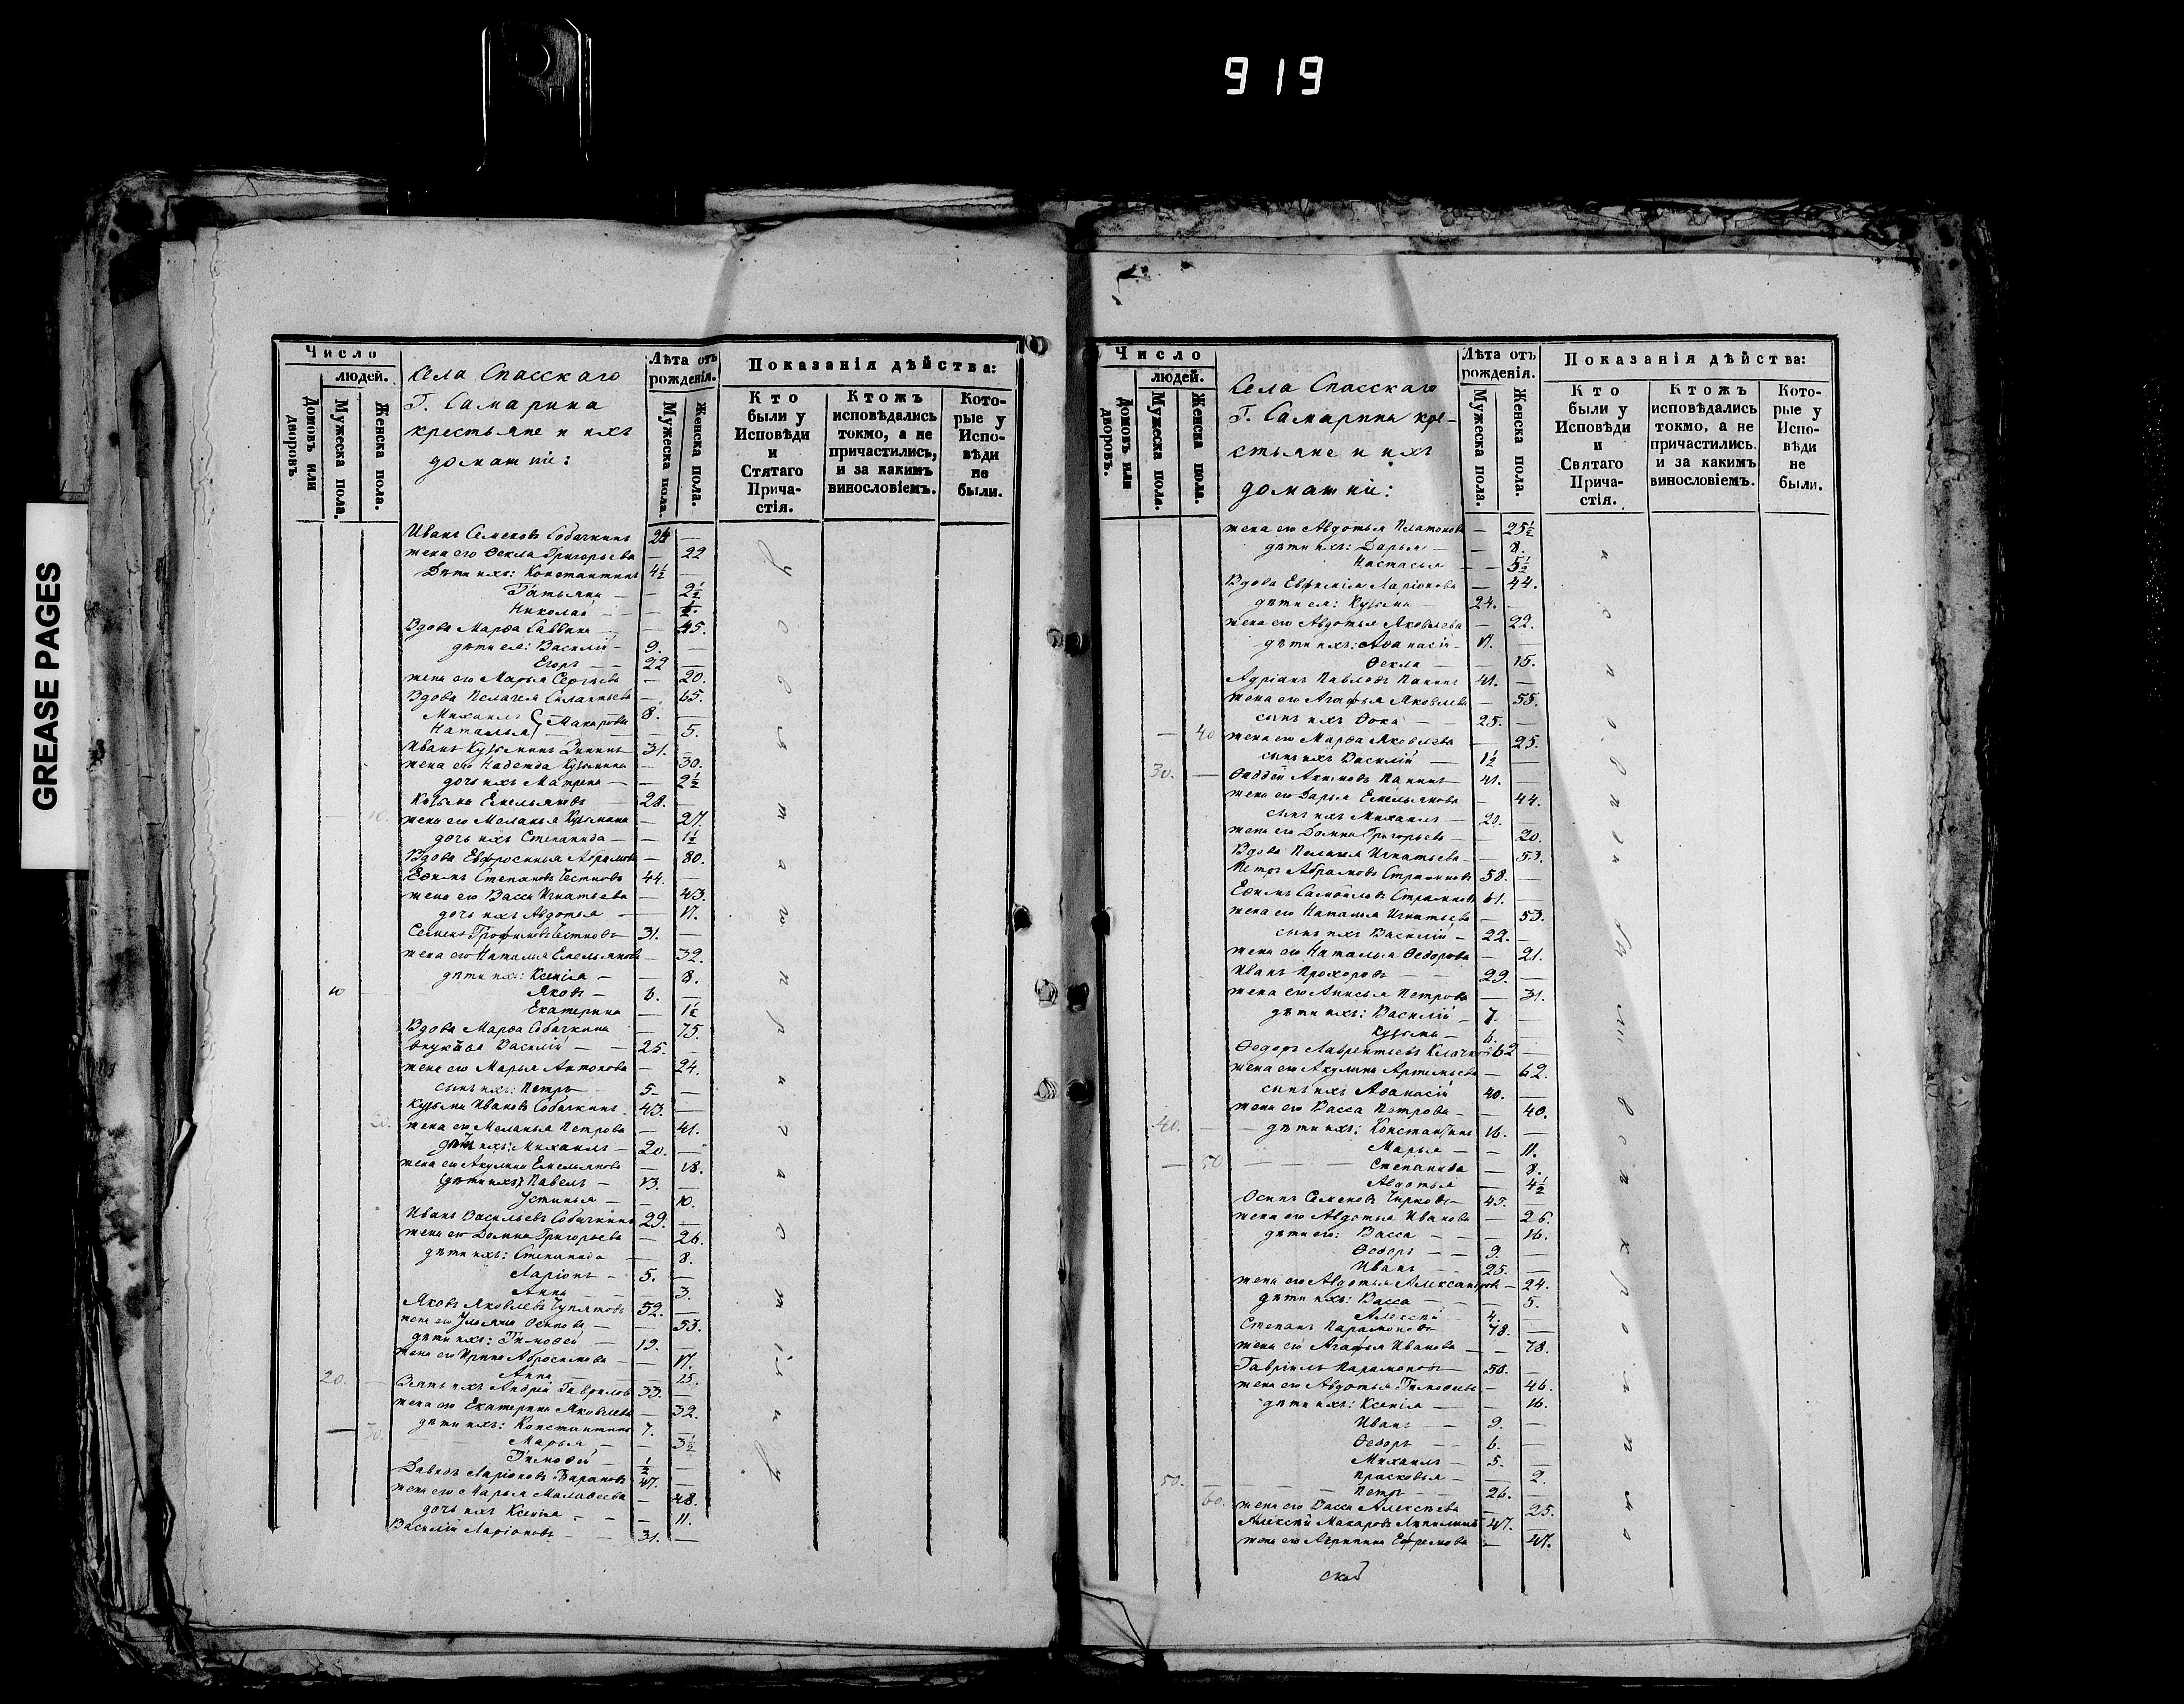 919
GREASE PAGES
Число
людей.
Домовъ или дворовъ.
Мужеска пола.
Женска пола.
Села Спасскаго
Г. Самарина
крестьяне и ихъ
домашніе:
Лѣта отъ рожденія.
Мужеска пола.
Женска пола.
Показанія дѣйства:
Кто были у Исповѣди и Стятаго Прича-стія.
Ктожъ исповѣдались токмо, а не причастились, и за какимъ винословіемъ.
Кото-рые у Испо-вѣди не были.
Иванъ Семеновъ Собачкинъ 24 —
жена его Ѳекла Григорьева — 22
Дѣти ихъ: Константинъ 4½ —
Татьяна — — 2½
Николай — — ½.
Вдова Марѳа Саввина — 45.
дѣти ея: Василій — 9. —
Егоръ — — 22 —
жена его Марья Сергѣева — 20.
Вдова Пелагея — 65.
Михаилъ 8. —
Макаровы
Наталья — 5.
Иванъ Кузьминъ 31. —
жена его Надежда Кузьмина — 30.
дочь ихъ Матрена — — 2½
Козьма Емельяновъ 28. —
10. жена его Меланья Кузьмина — 27.
дочь ихъ Степанида — — 1½
Вдова Евфросинья Абрамова — 80.
Ефимъ Степановъ 44. —
жена его Васса Игнатьева — 43.
дочь ихъ Авдотья — 17.
Семенъ Трофимовъ 31. —
жена его Наталья Емельянова — 32.
дѣти ихъ: Ксенія — — 8.
10 Яковъ — 6. —
Екатерина — 1½
Вдова Марѳа Собачкина — 75.
Василій — — 25. —
жена его Марья Антонова — 24.
сынъ ихъ: Петръ 5 —
Кузьма Ивановъ Собачкинъ 43. —
20. жена его Меланья Петрова — 41.
дѣти ихъ: Михаилъ — 20. —
жена его Акулина Емельянова — 18.
дѣти ихъ Павелъ — 13. —
Устинья — — 10.
Иванъ Васильевъ Собачкинъ 29. —
жена его Домна Григорьева — 26.
дѣти ихъ: Степанида — — 8.
Ларіонъ — 5. —
Анна — — 3.
Яковъ Яковлевъ 52. —
жена его Ульяна Осипова — — 53.
дѣти ихъ: Тимоѳей — 19. —
жена его Ирина Абросимова — — 17.
Анна — — 15.
20. — Зять ихъ Андрей Гавриловъ 33. —
жена его Екатерина Яковлева — 32.
— 30. дѣти ихъ: Константинъ 7. —
Марья — — 3½
Тимоѳей — ½ —
Давидъ Ларіоновъ Барановъ 47. —
жена его Марья — 48.
дочь ихъ Ксенія — — 11.
Василій Ларіоновъ — — 31. —
Число
людей.
Домовъ или дворовъ.
Мужеска пола.
Женска пола.
Села Спасскаго
Г. Самарина кре-
стьяне и ихъ
домашніе:
Лѣта отъ рожденія.
Мужеска пола.
Женска пола.
Показанія дѣйства:
Кто были у Исповѣди и Святаго Прича-стія.
Ктожъ исповѣдались токмо, а не причастились. и за какимъ винословіемъ.
Кото-рые у Испо-вѣди не были.
жена его Авдотья Платонова — 25½
дѣти ихъ: Дарья — — 8.
Настасья — — 5½
Вдова Евфимія Ларіонова — 44.
дѣти ея: Кузьма — 24. —
жена его Авдотья Яковлева — 22.
дѣти ихъ: Аѳанасій — 17. —
Ѳекла — — 15.
Адріанъ Павловъ Панинъ 41. —
жена его Агафья Яковлева — 55.
сынъ ихъ Ѳока — — 25. —
— 40 жена его Марѳа Яковлева — 25.
сынъ ихъ Василій — 1½ —
30. — Ѳаддей Акимовъ Панинъ 41. —
жена его Дарья Емельянова — 44.
сынъ ихъ Михаилъ — 20. —
жена его Домна Григорьева — 20.
Вдова Пелагея Игнатьева — — 53.
Петръ Абрамовъ 58. —
Ефимъ Самойловъ 61. —
жена его Наталья Игнатьева — 53.
сынъ ихъ Василій — 22. —
жена его Наталья Ѳедорова — 21.
Иванъ Прохоровъ — 29. —
жена его Анисья Петрова — 31.
дѣти ихъ: Василій — 7. —
Кузьма — 6. —
Ѳедоръ Лаврентьевъ 62 —
жена его Акулина Артемьева — 62.
сынъ ихъ Аѳанасій 40. —
жена его Васса Петрова — — 40.
40. — дѣти ихъ: Константинъ 16. —
Марья — — 11.
— 50 Степанида — 8.
Авдотья — 4½
Осипъ Семеновъ Чирковъ — 45. —
жена его Авдотья Иванова — 26.
дѣти его: Васса — — — 16.
Ѳедоръ — — 9. —
Иванъ — — 25. —
жена его Авдотья Александрова — 24.
дѣти ихъ: Васса — — — 5.
Алексѣй — 4. —
Степанъ Парамоновъ 78. —
жена его Агафья Иванова — — 78.
Гавріилъ Парамоновъ — 50. —
жена его Авдотья Тимоѳеева — 46.
дѣти ихъ: Ксенія — — 16.
Иванъ — — 9. —
Ѳедоръ — — 6. —
Михаилъ — 5. —
Прасковья — — 2.
50. — Петръ — 26. —
60. жена его Васса Алексѣева — 25.
Алексѣй Макаровъ 47. —
жена его Агрипина Ефремова — 47.